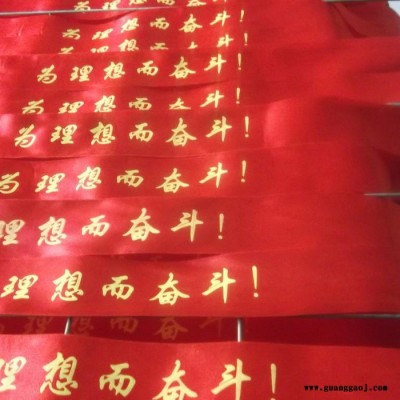 为理想而奋斗!
为理想而奋斗!
为理想而奋斗!
为理想而奋斗!
为理想而奋斗!
为理想而奋斗!
理想而奋斗!
理想而奋斗!
理想而奋斗!
www.guanggaoj.com